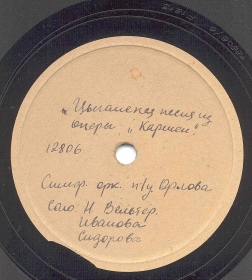 Цыганская песня из
оперы „Кармен"
12806
Симф. орк. п/у Орлова
Соло Н. Вельтер.
Иванова
Сидорова